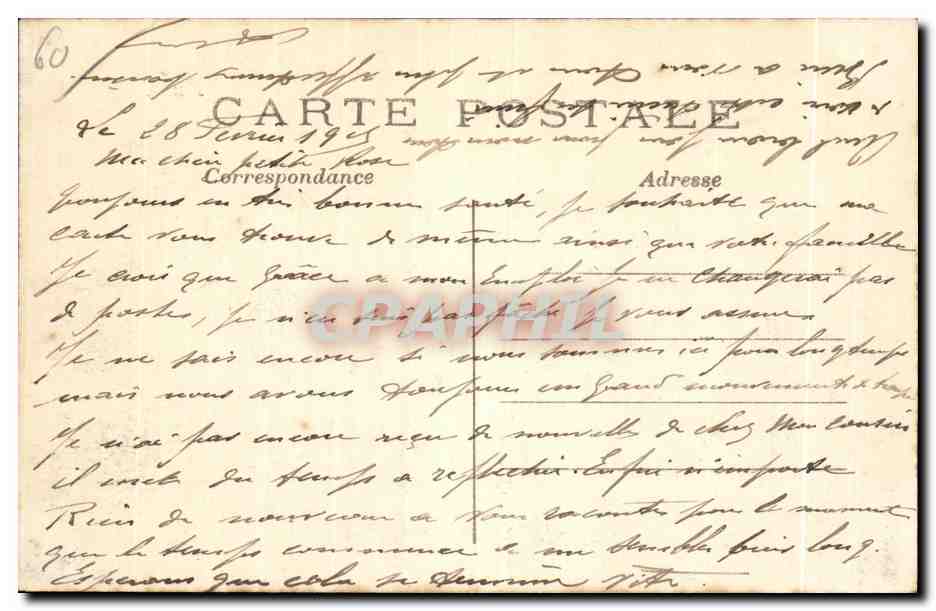 60
CARTE POSTALE
Le 28 Fevrier 1915
Ma chère petite Rose
Correspondance
Adresse
Toujours en très bonne santé, je souhaite que ma
carte vous trouve de même ainsi que votre famille
Je crois que grâce a mon Emploi je ne changerai pas
de postes, je n'en suis pas fâché je vous assure
Je ne sais encore si nous sommes ici pour longtemps
mais nous avons toujours un grand mouvement de troupe
Je n'ai pas encore reçu de nouvelles de chez Mon cousin
il met du temps a reflechir. Enfin n'importe
Rien de nouveau a vous raconter pour le moment
que le temps commence a me sembler bien long.
Esperons que cela se termine vite.
Bien a vous
CPAPHIL